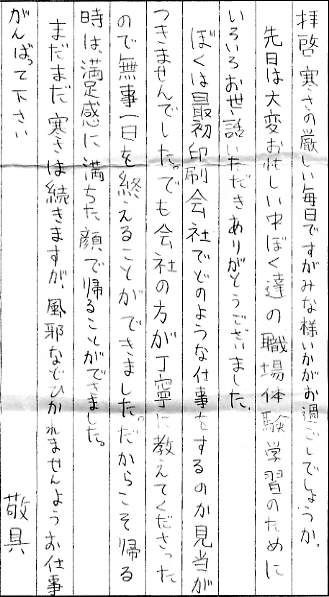 拝啓寒さの厳しい毎日ですがみな様いかがお過ごしでしょうか。
先日は大変お忙しい中ぼく達の職場体験学習のために
いろいろお世話いただきありがとうございました。
ぼくは最初印刷会社でどのような仕事をするのか見当が
つきませんでした。でも会社の方が丁寧に教えてくださった
ので無事一日を終えることができました。だからこそ帰る
時は、満足感に満ちた顔で帰ることができました。
まだまだ寒さは続きますが、風邪などひかれませんようお仕事
がんばって下さい
敬具